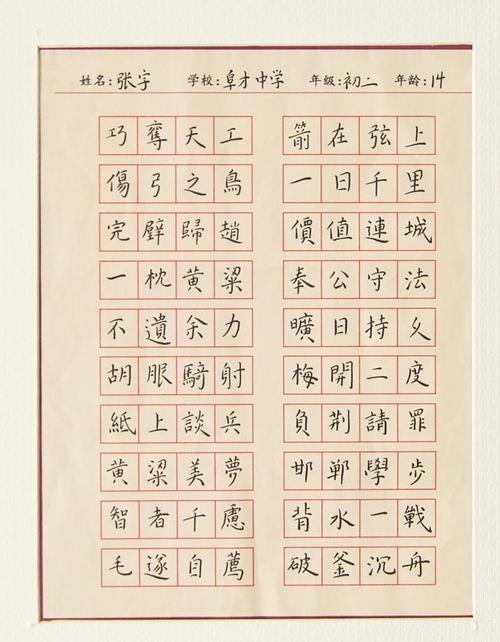 姓名:张宇 学校:阜才中学 年级:初二 年龄:14
巧奪天工 箭在弦上
傷弓之鳥 一日千里
完璧歸趙 價值連城
一枕黄粱 奉公守法
不遺余力 曠日持久
胡服騎射 梅開二度
紙上談兵 負荆請罪
黄粱美夢 邯鄲學步
智者千慮 背水一戰
毛遂自薦 破釜沉舟